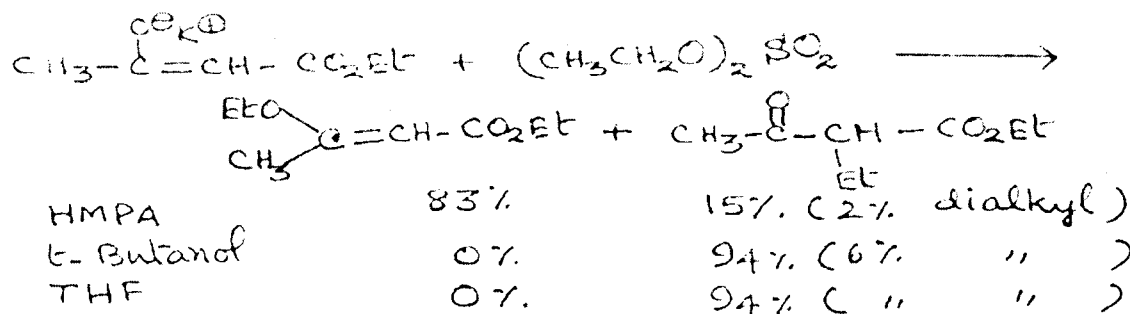 O⊖K⊕
CH3-C=CH-CO2Et + (CH3CH2O)2 SO2 ⟶
EtO O
C=CH-CO2Et + CH3-C-CH-CO2Et
CH3 Et
HMPA 83% 15% (2% dialkyl)
t-Butanol 0% 94% (6% " )
THF 0% 94% ( " " )